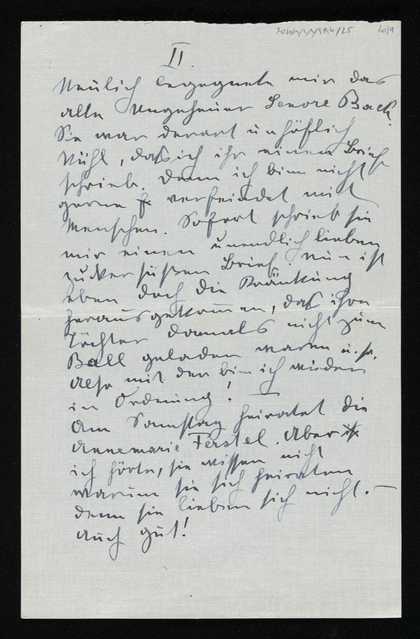 II.
Neulich begegnete mir das
alte Ungeheuer Lenore Bach.
Sie war derart unhöflich
kühl, dass ich ihr einen Brief
schrieb. Denn ich bin nicht
gerne verfeindet mit
Menschen. Sofort schrieb sie
mir einen unendlich lieben
zuckersüßen Brief. Nun ist
eben doch die Kränkung
herausgekommen, dass ihre
Töchter damals nicht zum
Ball geladen waren u.s.
Also mit der bin ich wieder
in Ordnung! —
Am Samstag heiratet die
Annemarie Ferstel. Aber
ich hörte, sie wissen nicht
warum sie sich heiraten
denn sie lieben sich nicht. —
Auch gut!